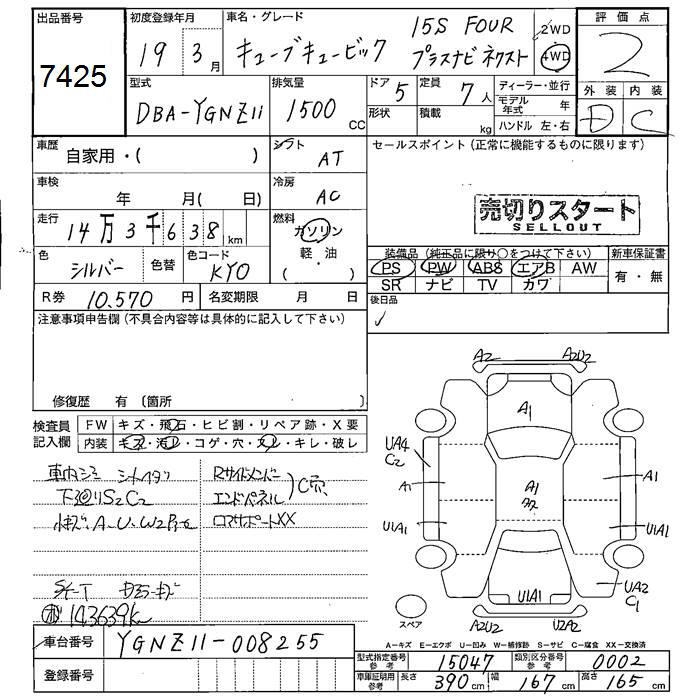 出品番号
7425
初度登録年月
19 3月
車名・グレード
キューブキュービック
15S FOUR
プラスナビネクスト
2WD
4WD
評価点
2
外装 内装
D C
型式
DBA-YGNZ11
排気量
1500 CC
ドア
5
定員
7人
形状
積載
kg
ディーラー・並行
モデル年式 年
ハンドル 左・右
車歴
自家用・( )
シフト
AT
セールスポイント(正常に機能するものに限ります)
車検
年 月( 日)
冷房
AC
売切りスタート
SELLOUT
走行
14万3千638km
燃料
ガソリン
軽・油
( ・ )
色
シルバー
色替
色コード
KY0
装備品(純正品に限り○をつけて下さい)
PS PW ABS エアB AW
SR ナビ TV カワ
新車保証書
有・無
R券 10.570円
名変期限 月 日
後日品
注意事項申告欄(不具合内容等は具体的に記入して下さい)
修復歴 有(箇所
検査員記入欄
FW キズ・飛石・ヒビ割・リペア跡・X要
内装 キズ・汚レ・コゲ・穴・スレ・キレ・破レ
下廻りS2C2
Rサイドメンバー
エンドパネル
C穴
コアサポートXX
143639k
A2 A2U2
A1
UA4
C2
A1
A1
A1
U1A1
U1A1
U1A1
UA2
C1
スペア
A2U2 U2A2
A-キズ E-エクボ U-凹み W-補修跡 S-サビ C-腐食 XX-交換済
車台番号
YGNZ11-008255
登録番号
型式指定番号参考
15047
類別区分番号参考
0002
車庫証明用参考
長さ 390cm
幅 167cm
高さ 165cm